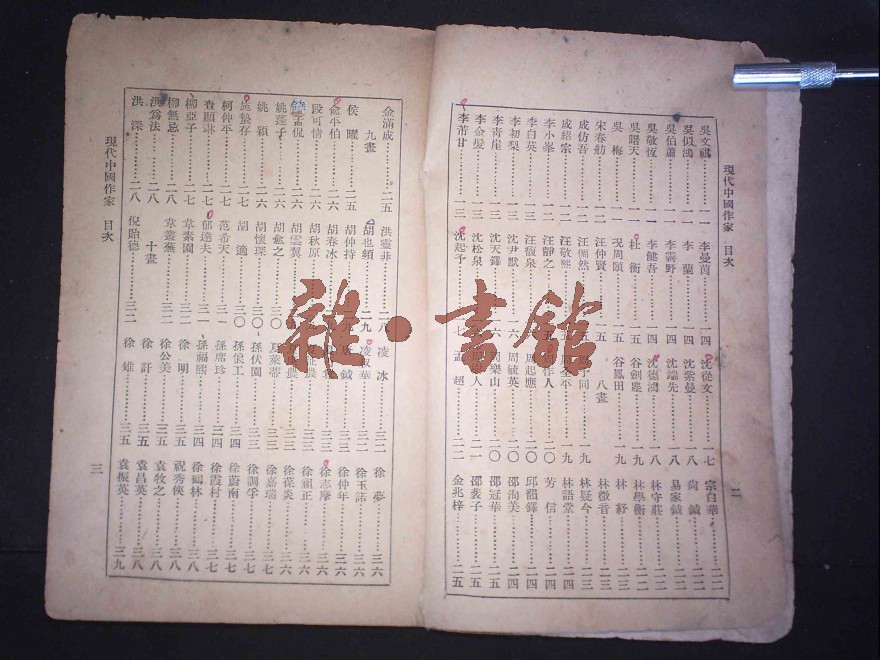 現代中國作家 目次
吳文祺……一一
吳似鴻……一一
吳伯蕭……一一
吳敬恆……一一
吳曙天……一一
吳 梅……一一
宋春舫……一二
成仿吾……一二
成紹宗……一二
李小峯……一二
李白英……一二
李初梨……一三
李靑崖……一三
李金髮……一三
李芾甘……一三
李曼茵……一四
李 蘭……一四
李霽野……一四
李健吾……一四
杜 衡……一五
況周頤……一五
汪仲賢……一五
汪倜然
汪敬熙
汪靜之
汪馥泉
沈尹默……一六
沈天鐸
沈松泉
沈起予……一七
沈從文……一七
沈紫曼……一八
沈端先……一八
沈德鴻……一八
谷劍塵……一九
谷鳳田……一九
八畫
同……一九
平……一九
作人……二〇
周起應……二〇
周毓英……二〇
周樂山……二〇
人……二一
孟 超……二一
宗白華……二二
尙 鉞……二二
易家鉞……二二
林守莊……二二
林學衡……二二
林 紓……二三
林徽音……二三
林疑今……二三
林語堂……二四
芳 信……二四
邱韻鐸……二四
邵洵美……二四
邵冠華……二五
邵裴子……二五
金兆梓……二五
二
金滿成……二五
九畫
侯 曜……二五
兪平伯……二六
段可情……二六
侃
姚蓬子……二六
姚 穎……二六
施蟄存……二七
柯仲平……二七
查顯琳……二七
柳亞子……二七
柳無忌……二八
洪爲法……二八
洪 深……二八
洪靈菲……二八
胡也頻……二九
胡仲持
胡春冰
胡秋原
胡雲翼
胡愈之……三〇
胡懷琛……三〇
胡 適……三〇
范希天……三一
郁達夫……三一
韋素園……三一
韋叢蕪……三一
十畫
倪貽德……三二
凌 冰……三二
凌叔華……三二
鉞……三二
夏萊蒂……三三
孫伏園……三三
孫俍工……三四
孫席珍……三四
孫福熙……三四
徐 明……三五
徐公美……三五
徐 訏……三五
徐 雉……三五
徐 夢……三六
徐玉諾……三六
徐仲年……三六
徐志摩……三六
徐祖正……三六
徐葆炎……三六
徐嘉瑞……三七
徐調孚……三七
徐蔚南……三七
徐霞村……三七
徐鶴林……三八
祝秀俠……三八
袁牧之……三八
袁昌英……三八
袁振英……三九
現代中國作家 目次
三
雜·書館